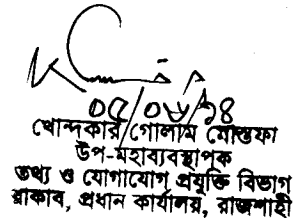 ০৫/০৮/১৪
খোন্দকার গোলাম মোস্তফা
উপ-মহাব্যবস্থাপক
তথ্য ও যোগাযোগ প্রযুক্তি বিভাগ
রাকাব, প্রধান কার্যালয়, রাজশাহী